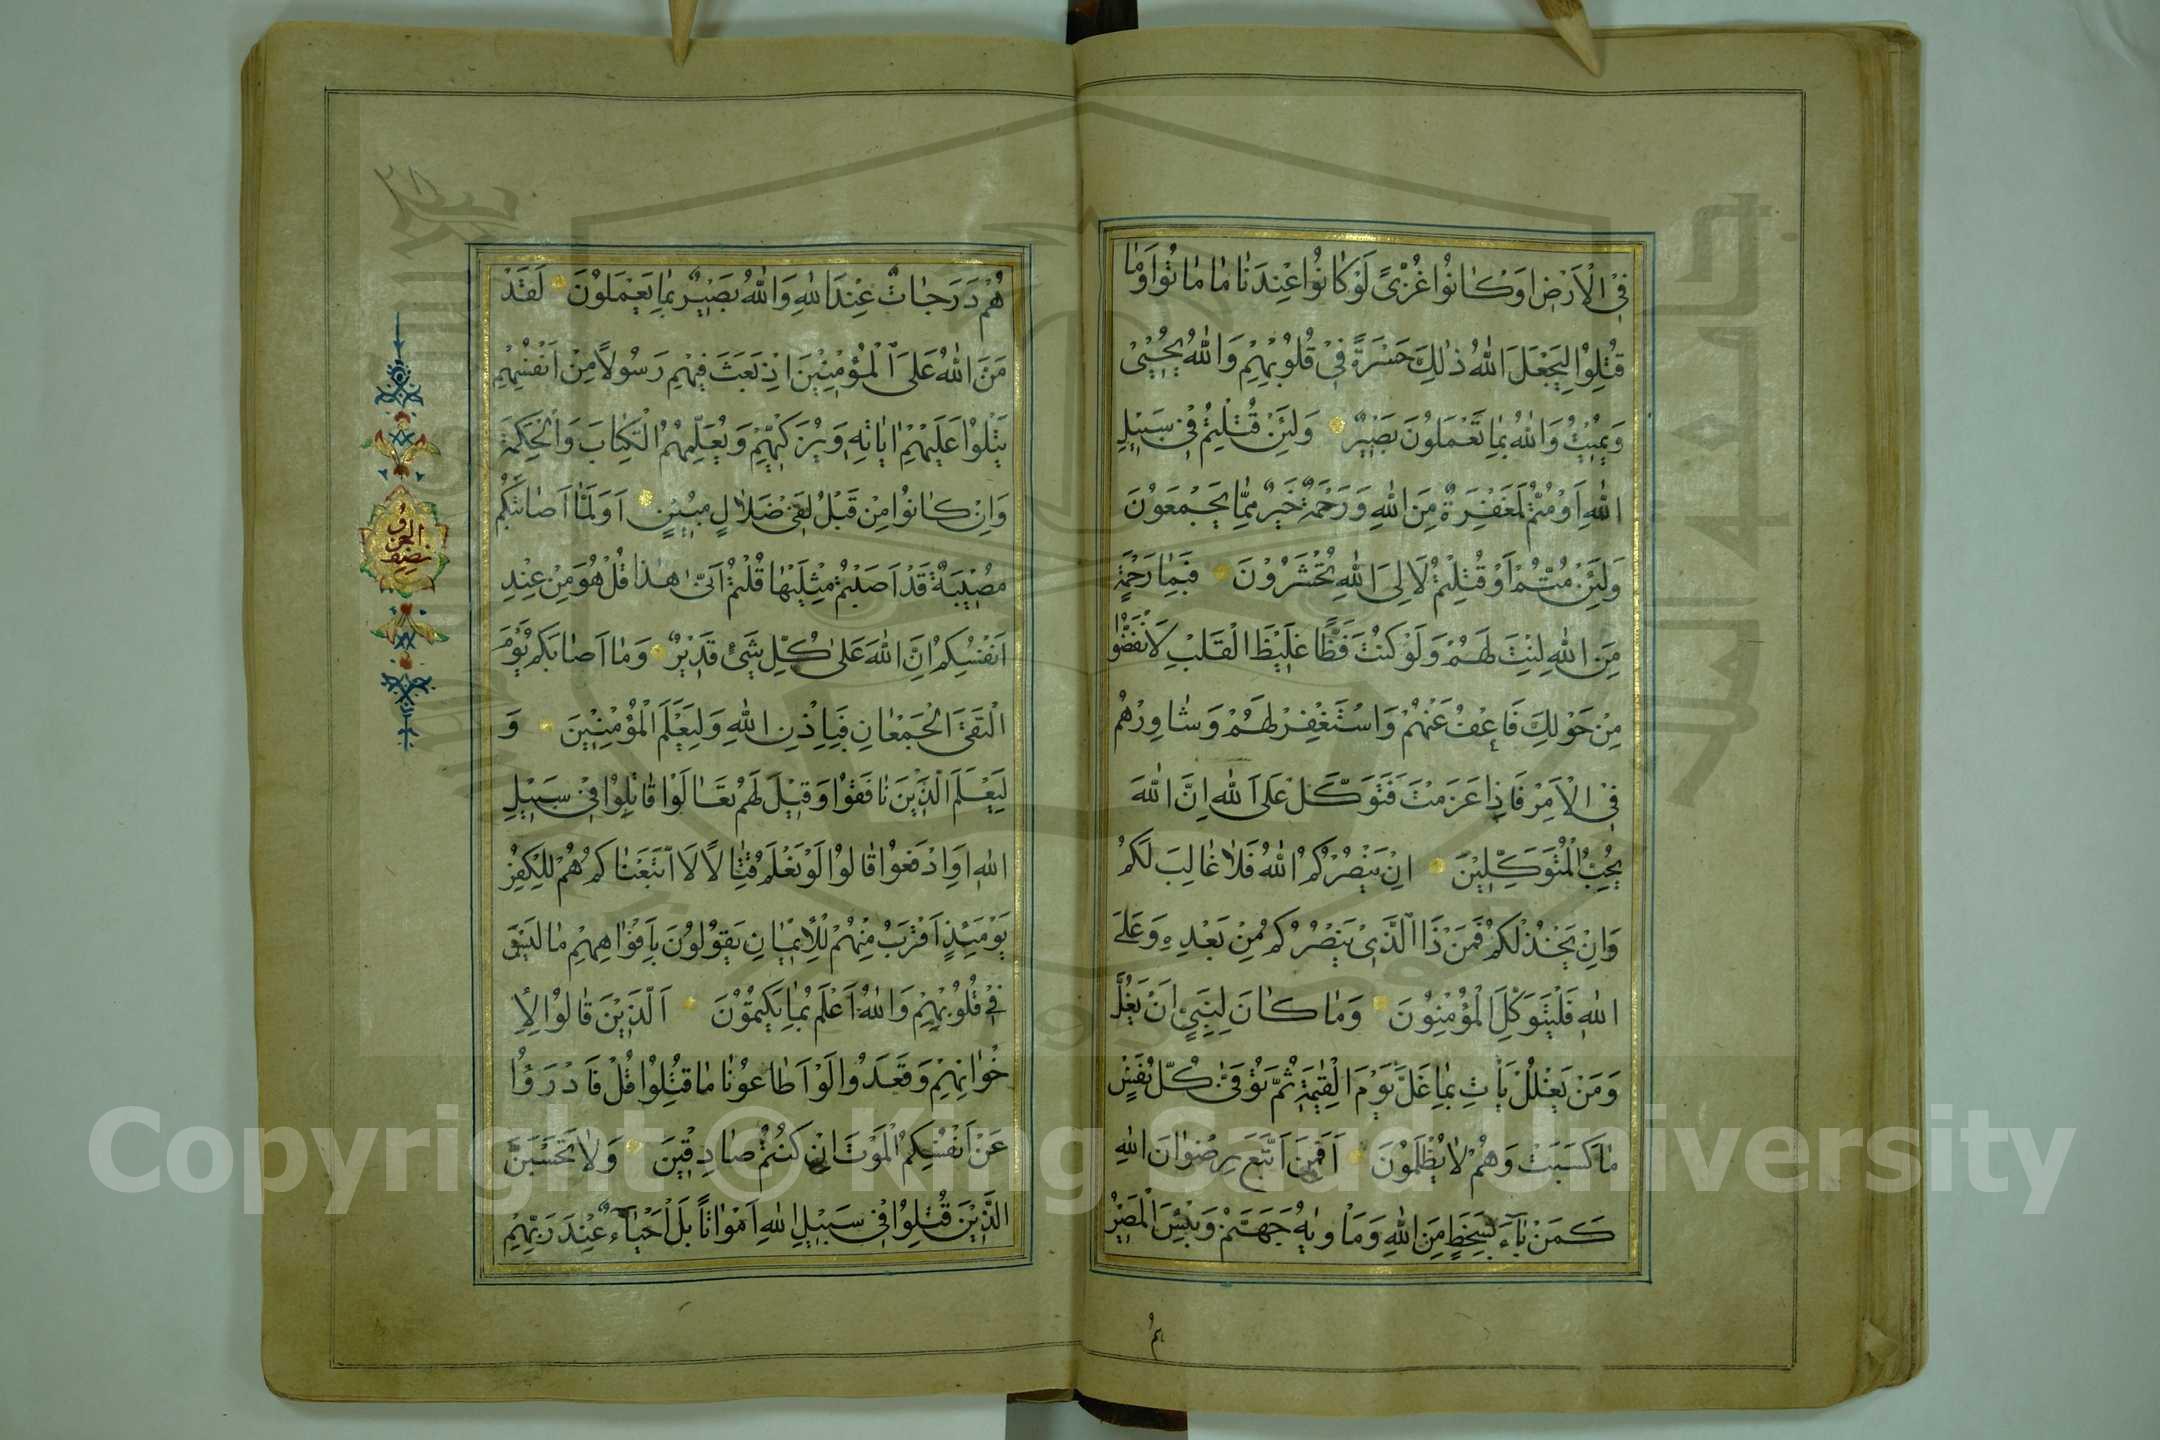 فِي الْاَرْضِ اَوْ كَانُوا غُزًّى لَوْ كَانُوا عِنْدَنَا مَا مَاتُوا وَمَا
قُتِلُوا لِيَجْعَلَ اللّٰهُ ذٰلِكَ حَسْرَةً فِي قُلُوبِهِمْ وَاللّٰهُ يُحْيِي
وَيُمِيتُ وَاللّٰهُ بِمَا تَعْمَلُونَ بَصِيرٌ وَلَئِنْ قُتِلْتُمْ فِي سَبِيلِ
اللّٰهِ اَوْ مُتُّمْ لَمَغْفِرَةٌ مِنَ اللّٰهِ وَرَحْمَةٌ خَيْرٌ مِمَّا يَجْمَعُونَ
وَلَئِنْ مُتُّمْ اَوْ قُتِلْتُمْ لَاِلَى اللّٰهِ تُحْشَرُونَ فَبِمَا رَحْمَةٍ
مِنَ اللّٰهِ لِنْتَ لَهُمْ وَلَوْ كُنْتَ فَظًّا غَلِيظَ الْقَلْبِ لَانْفَضُّوا
مِنْ حَوْلِكَ فَاعْفُ عَنْهُمْ وَاسْتَغْفِرْ لَهُمْ وَشَاوِرْهُمْ
فِي الْاَمْرِ فَاِذَا عَزَمْتَ فَتَوَكَّلْ عَلَى اللّٰهِ اِنَّ اللّٰهَ
يُحِبُّ الْمُتَوَكِّلِينَ اِنْ يَنْصُرْكُمُ اللّٰهُ فَلَا غَالِبَ لَكُمْ
وَاِنْ يَخْذُلْكُمْ فَمَنْ ذَا الَّذِي يَنْصُرُكُمْ مِنْ بَعْدِهِ وَعَلَى
اللّٰهِ فَلْيَتَوَكَّلِ الْمُؤْمِنُونَ وَمَا كَانَ لِنَبِيٍّ اَنْ يَغُلَّ
وَمَنْ يَغْلُلْ يَأْتِ بِمَا غَلَّ يَوْمَ الْقِيٰمَةِ ثُمَّ تُوَفّٰى كُلُّ نَفْسٍ
مَا كَسَبَتْ وَهُمْ لَا يُظْلَمُونَ اَفَمَنِ اتَّبَعَ رِضْوَانَ اللّٰهِ
كَمَنْ بَاءَ بِسَخَطٍ مِنَ اللّٰهِ وَمَأْوٰيهُ جَهَنَّمُ وَبِئْسَ الْمَصِيرُ
هُمْ
هُمْ دَرَجَاتٌ عِنْدَ اللّٰهِ وَاللّٰهُ بَصِيرٌ بِمَا يَعْمَلُونَ لَقَدْ
مَنَّ اللّٰهُ عَلَى الْمُؤْمِنِينَ اِذْ بَعَثَ فِيهِمْ رَسُولًا مِنْ اَنْفُسِهِمْ
يَتْلُوا عَلَيْهِمْ اٰيَاتِهِ وَيُزَكِّيهِمْ وَيُعَلِّمُهُمُ الْكِتَابَ وَالْحِكْمَةَ
وَاِنْ كَانُوا مِنْ قَبْلُ لَفِي ضَلَالٍ مُبِينٍ اَوَلَمَّا اَصَابَتْكُمْ
مُصِيبَةٌ قَدْ اَصَبْتُمْ مِثْلَيْهَا قُلْتُمْ اَنّٰى هٰذَا قُلْ هُوَ مِنْ عِنْدِ
اَنْفُسِكُمْ اِنَّ اللّٰهَ عَلٰى كُلِّ شَيْءٍ قَدِيرٌ وَمَا اَصَابَكُمْ يَوْمَ
الْتَقَى الْجَمْعَانِ فَبِاِذْنِ اللّٰهِ وَلِيَعْلَمَ الْمُؤْمِنِينَ وَ
لِيَعْلَمَ الَّذِينَ نَافَقُوا وَقِيلَ لَهُمْ تَعَالَوْا قَاتِلُوا فِي سَبِيلِ
اللّٰهِ اَوِ ادْفَعُوا قَالُوا لَوْ نَعْلَمُ قِتَالًا لَاتَّبَعْنَاكُمْ هُمْ لِلْكُفْرِ
يَوْمَئِذٍ اَقْرَبُ مِنْهُمْ لِلْاِيمَانِ يَقُولُونَ بِاَفْوَاهِهِمْ مَا لَيْسَ
فِي قُلُوبِهِمْ وَاللّٰهُ اَعْلَمُ بِمَا يَكْتُمُونَ اَلَّذِينَ قَالُوا لِاِ
خْوَانِهِمْ وَقَعَدُوا لَوْ اَطَاعُونَا مَا قُتِلُوا قُلْ فَادْرَؤُا
عَنْ اَنْفُسِكُمُ الْمَوْتَ اِنْ كُنْتُمْ صَادِقِينَ وَلَا تَحْسَبَنَّ
الَّذِينَ قُتِلُوا فِي سَبِيلِ اللّٰهِ اَمْوَاتًا بَلْ اَحْيَاءٌ عِنْدَ رَبِّهِمْ
نصف
الحزب
Copyright © King Saud University